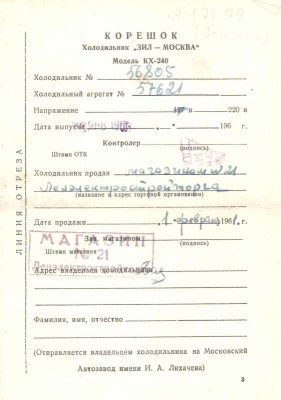 КОРЕШОК
Холодильник „ЗИЛ — МОСКВА“
Модель КХ-240
Холодильник № 56805
Холодильный агрегат № 57621
Напряжение 127 в 220 в
Дата выпуска 196 г.
Контролер
(подпись)
Штамп ОТК
Холодильник продан магазином № 21
Ленэлектростройторга
(название и адрес торговой организации)
Дата продажи 1 февраля 1961 г.
Зав. магазином
(подпись)
Штамп магазина
МАГАЗИН
№ 21
Адрес владельца холодильника
Фамилия, имя, отчество
(Отправляется владельцем холодильника на Московский
Автозавод имени И. А. Лихачева)
3
ЛИНИЯ ОТРЕЗА